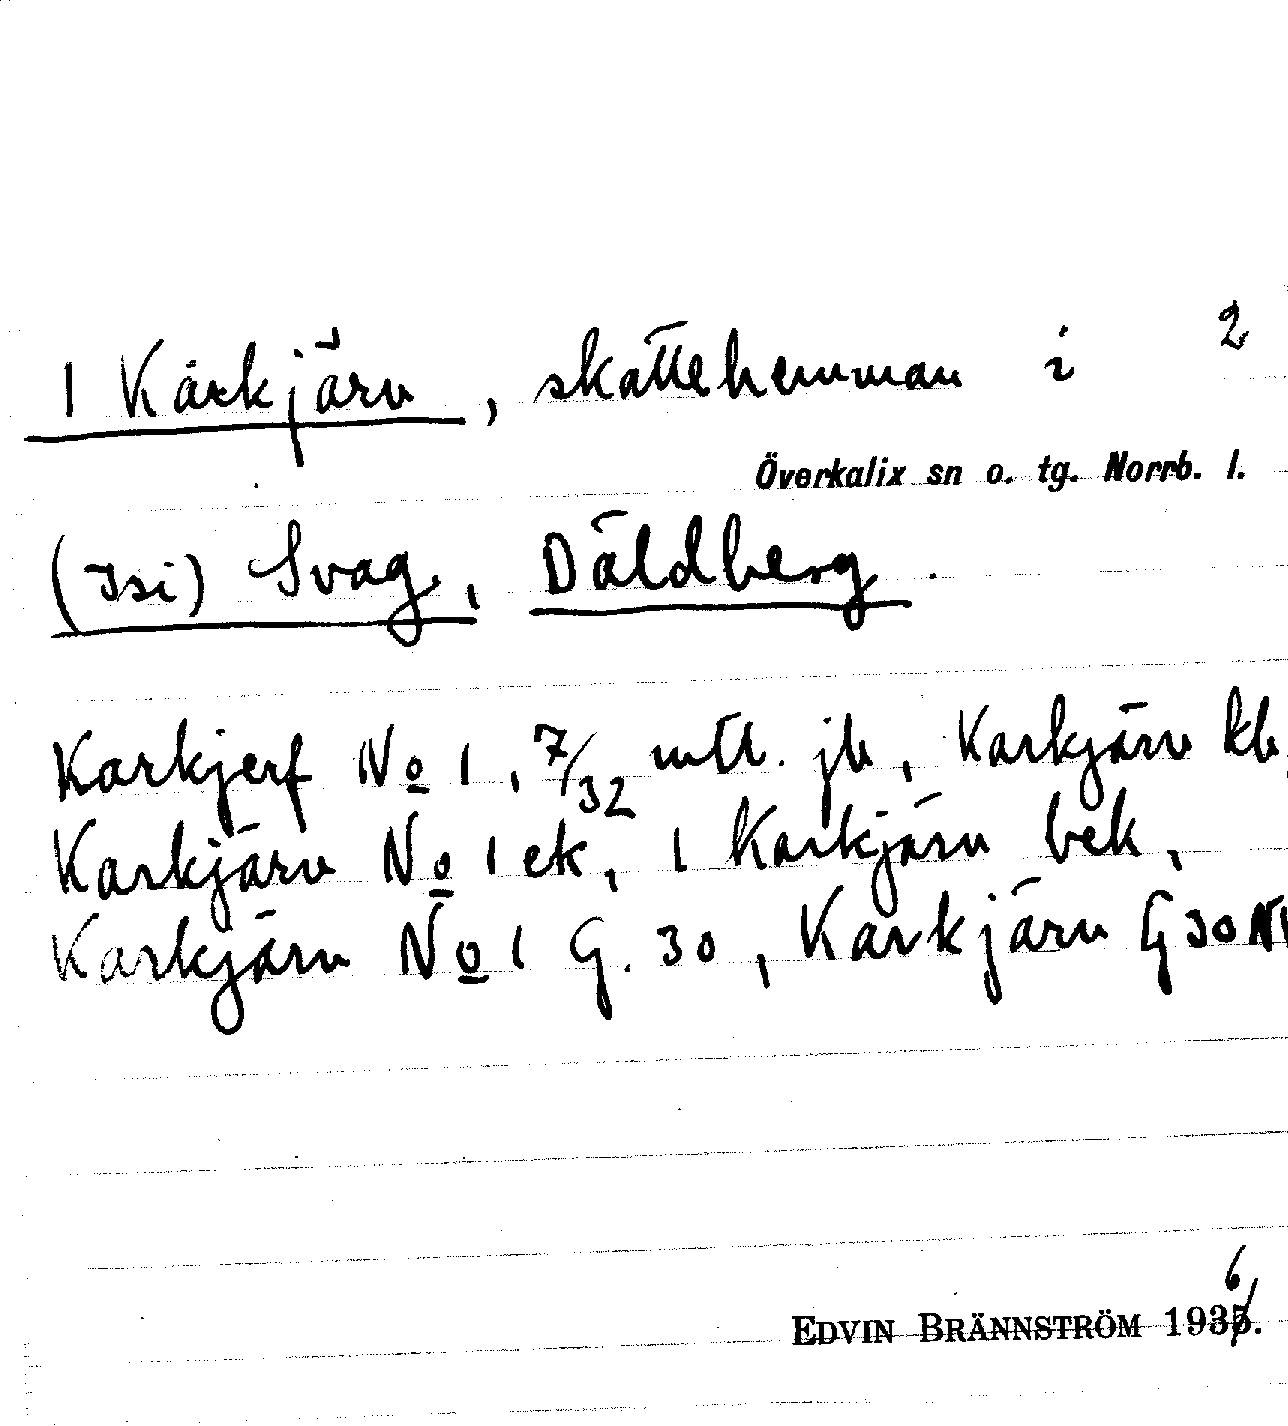 1 Kårkjärv, skattehemman i 2
Överkalix sn o. tg. Norrb. l.
(Isi) Svag, Däldberg.
Karkjerf No 1, 7/32 mtl. jb, Karkjärv kb,
Karkjärv No 1 ek, 1 Karkjärv bek,
Karkjärv No 1 G. 30, Karkjärv G 30 NV
EDVIN BRÄNNSTRÖM 1936.